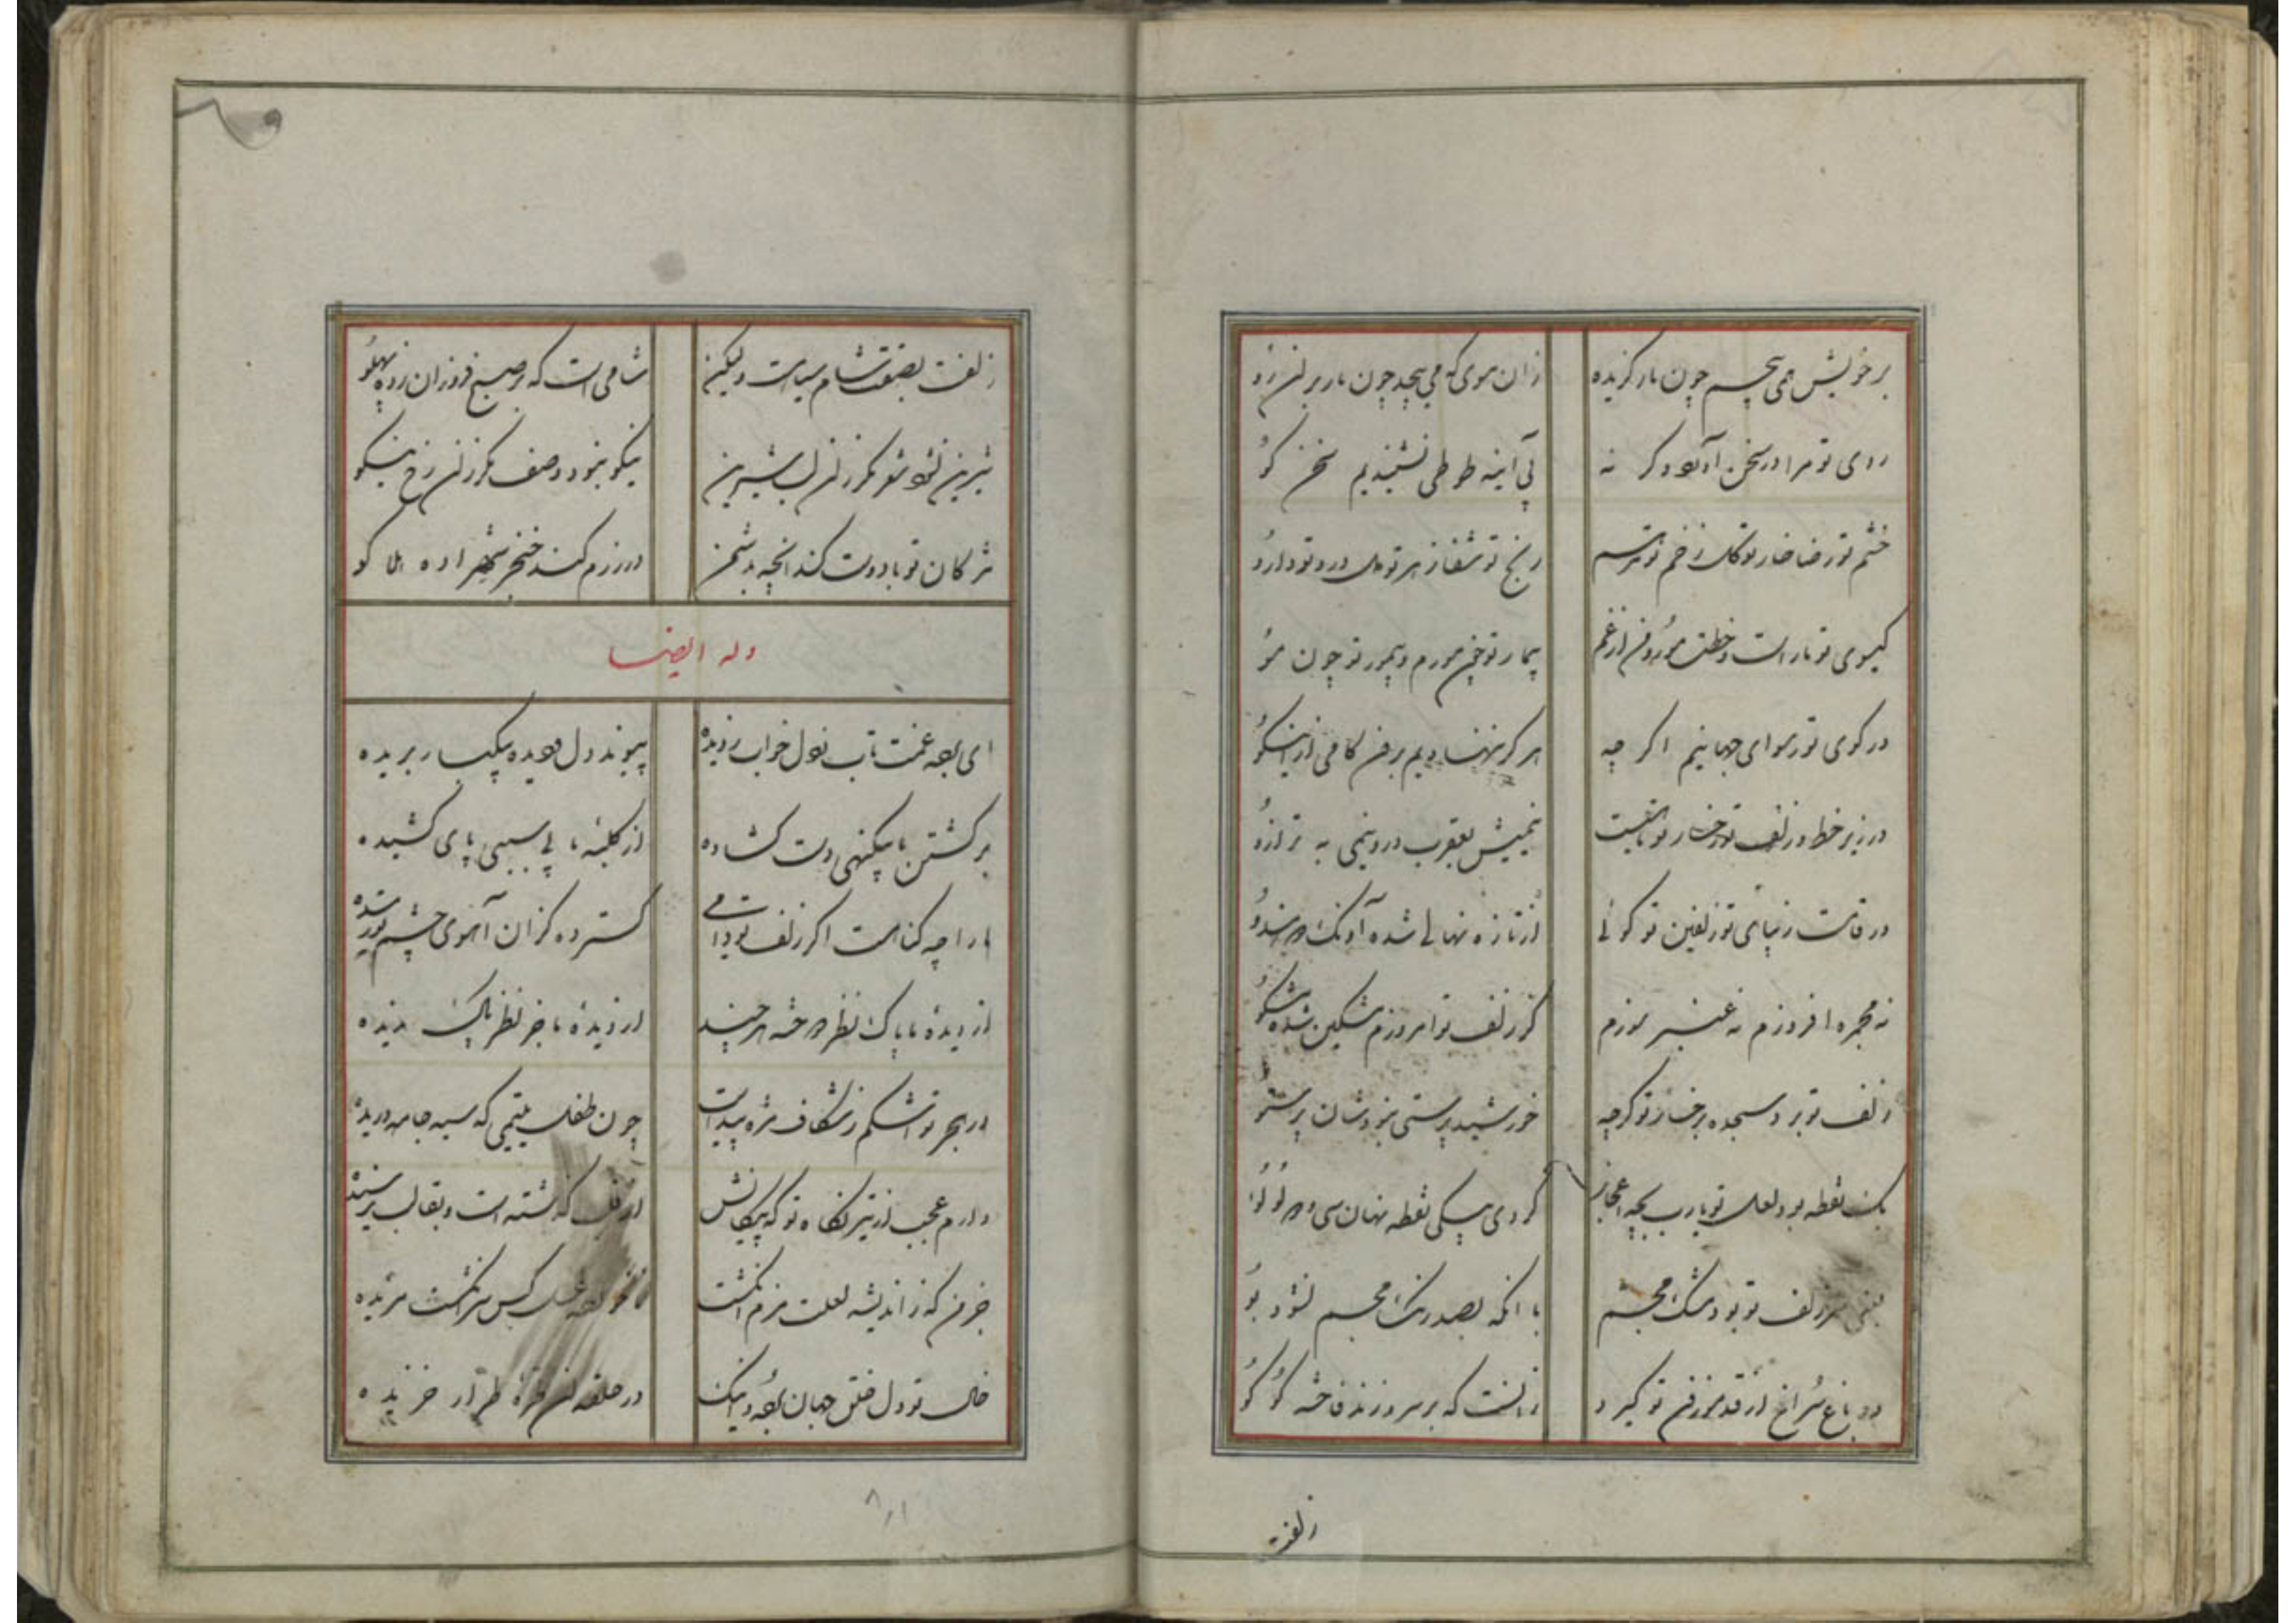 بر خویش همی پیچم چون مار گزیده
زان موی که می پیچد چون مار بر آن رو
روی تو مرا در سخن آورد و گر نه
بی آینه طوطی نشنیدیم سخن گو
خشم تو رضا خار تو گل زخم تو مرهم
رنج تو شفا زهر تو مل درد تو دارو
گیسوی تو مار است و خطت مور و من از غم
پیمار تو چون مورم و بیمور تو چون مو
در کوی تو رسوای جهانیم اگر چه
هرگز ننهادیم برون گامی از آن کو
در زیر خط و زلف تو رخسار تو
نیمیش بعقرب در و نیمی به ترازو
در قامت زیبای تو زلفین تو گوئی
از تازه نهالی شده آونگ دو هندو
نه مجمره افروزم نه عنبر سوزم
کز زلف تو امروزم مشکین شده مشکو
زلف تو برد سجده برخسار تو گرچه
خورشید پرستی نبود شان پرستو
یک نقطه بود لعل تو یارب بچه اعجاز
کردی بیکی نقطه نهان سی و دو لولو
سر زلف تو بود مشک مجسم
با آنکه بصد رنگ مجسم نشود بو
در باغ سراغ از قد موزون تو گیرد
زانست که بر سرو زند فاخته کو کو
زلفت
زلفت بصفت شام سیاست ولیکن
شامی است که بر صبح فروزان زده پهلو
شیرین نشود شعر مگر زان لب شیرین
نیکو نبود وصف مگر زان رخ نیکو
مژگان تو با دوست کند آنچه بدشمن
در رزم کند خنجر شهزاده هلاکو
وله ایضا
ای بوده غمت تاب دل خواب ز دیده
پیوند دل و دیده بیکبار بریده
بر کشتن ما بیگنهی دست گشاده
از کلبه ما بی سببی پای کشیده
ما را چه گناهست اگر زلف تو دامی
گسترده کزان آهوی چشم تو رمیده
از دیده ما پاک نظر دوخته هر چند
از دیده ما جز نظر پاک ندیده
در هجر تو اشکم ز شکاف مژه پیداست
چون طفل یتیمی که سیه جامه دریده
دارم عجب از تیر نگاه تو که پیکانش
از دل گذشته است و بقالب نرسیده
جز من که ز اندیشه لعلت مزم انگشت
کس سر انگشت مزیده
خال تو دل خلق جهان برده و اینک
در حلقه آن طره طرار خزیده